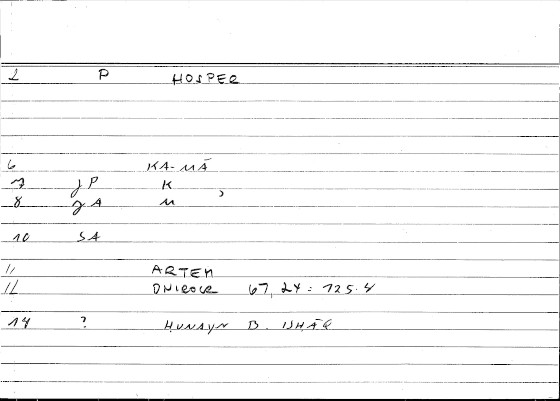 2 P HOSPER
6 KA-MĀ
7 JP K
8 JA M ,
10 SA
11 ARTEM
12 67, 24 : 125.4
14 ? HUNAYN B. ISHĀQ